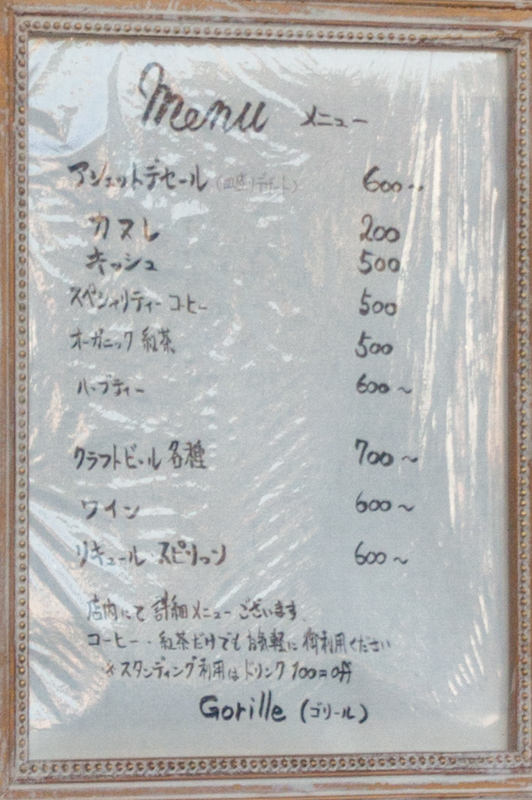 Menu メニュー
アシェットデセール (皿盛りデザート) 600~
カヌレ 200
キッシュ 500
スペシャリティーコーヒー 500
オーガニック紅茶 500
ハーブティー 600~
クラフトビール各種 700~
ワイン 600~
リキュール・スピリッツ 600~
店内にて詳細メニューございます
コーヒー・紅茶だけでもお気軽に御利用ください
※スタンディング利用はドリンク100=off
Gorille (ゴリール)